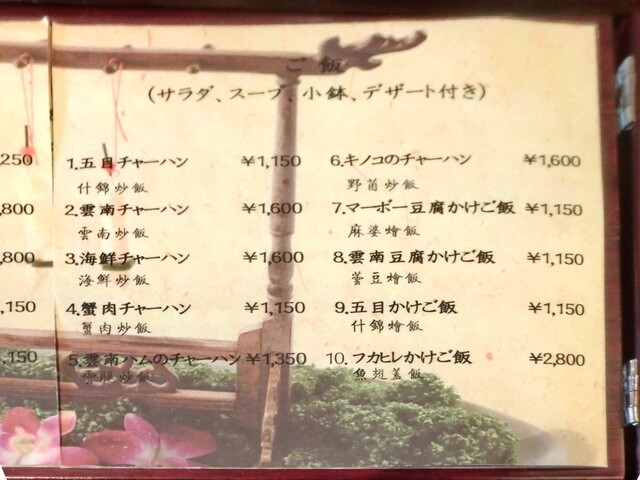 ご飯
(サラダ、スープ、小鉢、デザート付き)
,250
,800
,800
,150
,150
1.五目チャーハン ¥1,150
什錦炒飯
2.雲南チャーハン ¥1,600
雲南炒飯
3.海鮮チャーハン ¥1,600
海鮮炒飯
4.蟹肉チャーハン ¥1,150
蟹肉炒飯
5.雲南ハムのチャーハン ¥1,350
雲腿炒飯
6.キノコのチャーハン ¥1,600
野菌炒飯
7.マーボー豆腐かけご飯 ¥1,150
麻婆燴飯
8.雲南豆腐かけご飯 ¥1,150
豆燴飯
9.五目かけご飯 ¥1,150
什錦燴飯
10.フカヒレかけご飯 ¥2,800
魚翅蓋飯